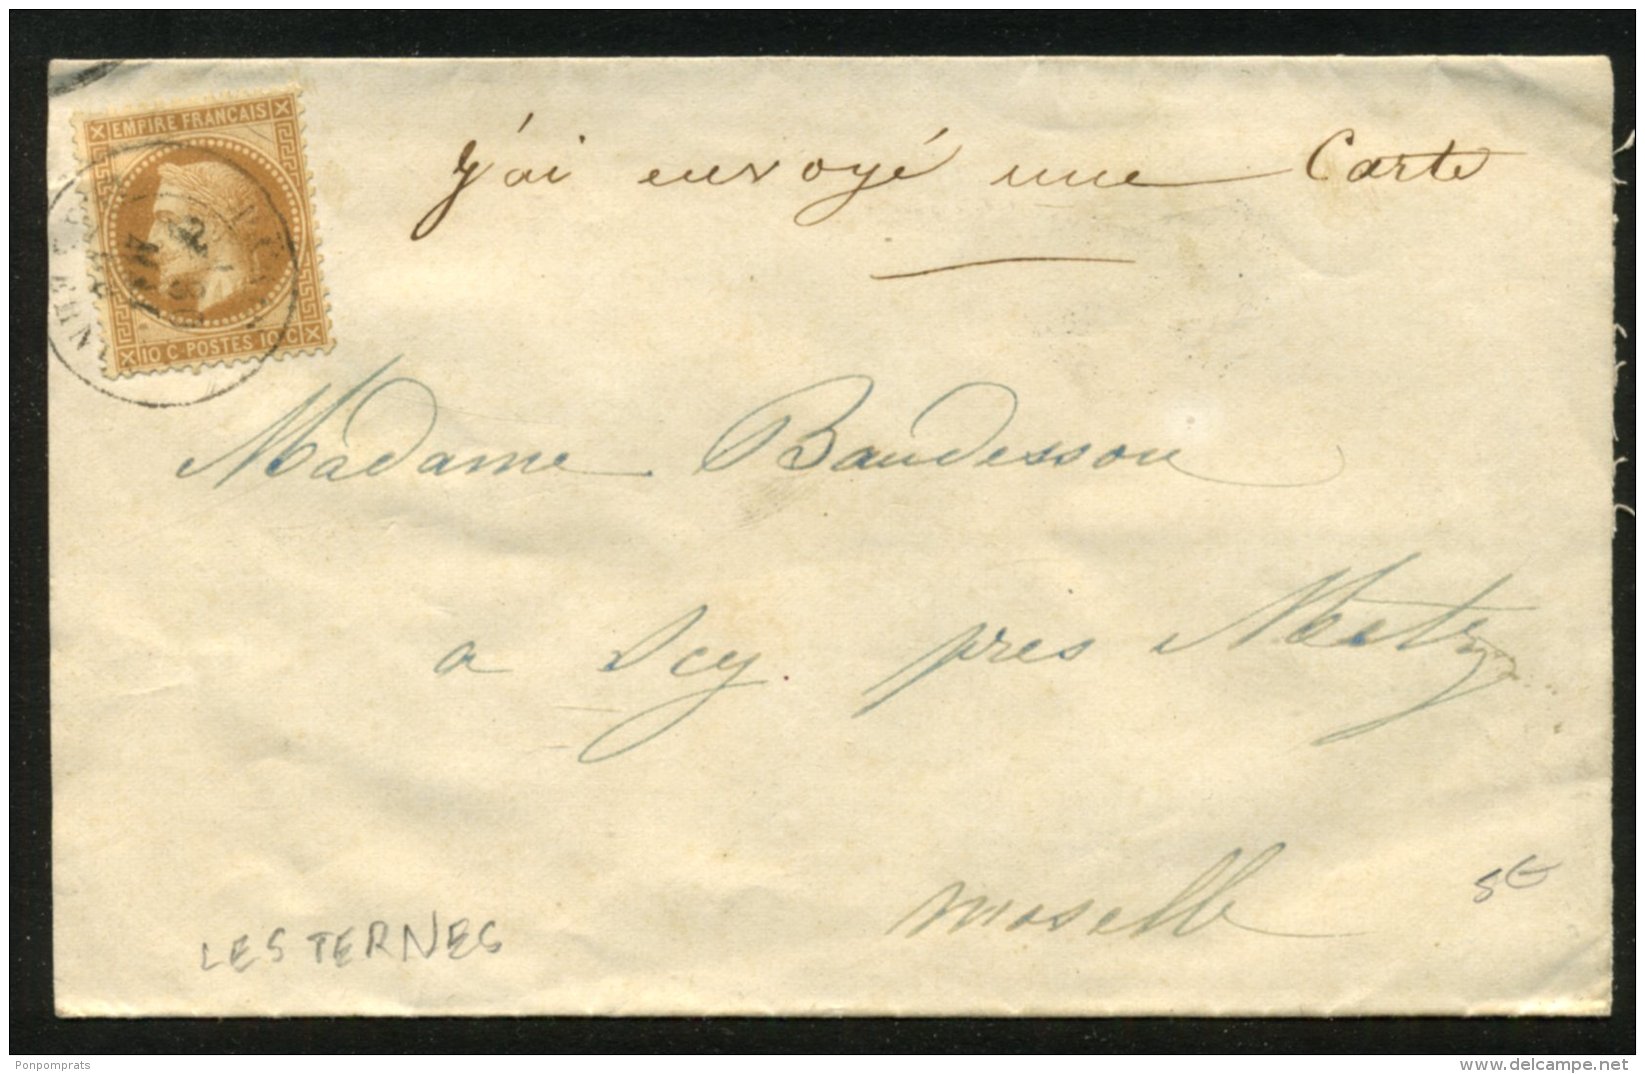 EMPIRE FRANCAIS
10 C POSTES 10 C
j'ai envoyé une Carte
Madame Baudesson
a Scy près Metz
moselle
LES TERNES
Ponpomprats
www.delcampe.net